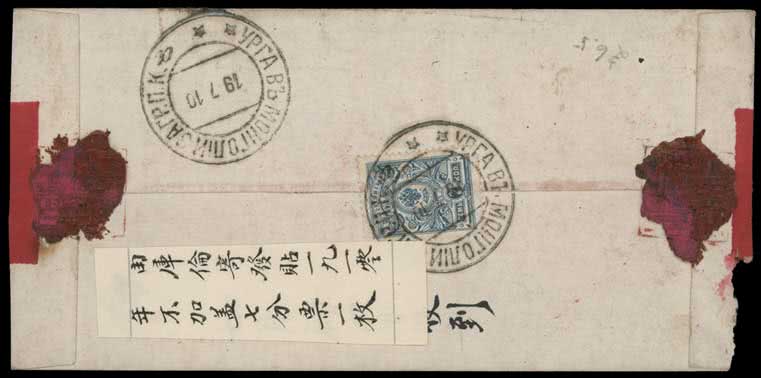 УРГА ВЪ МОНГОЛІИ ЗАГР.П.К.
19.7.10
УРГА ВЪ МОНГОЛІИ
由庫倫寄發貼一九一零
年不加盖七分票一枚
到